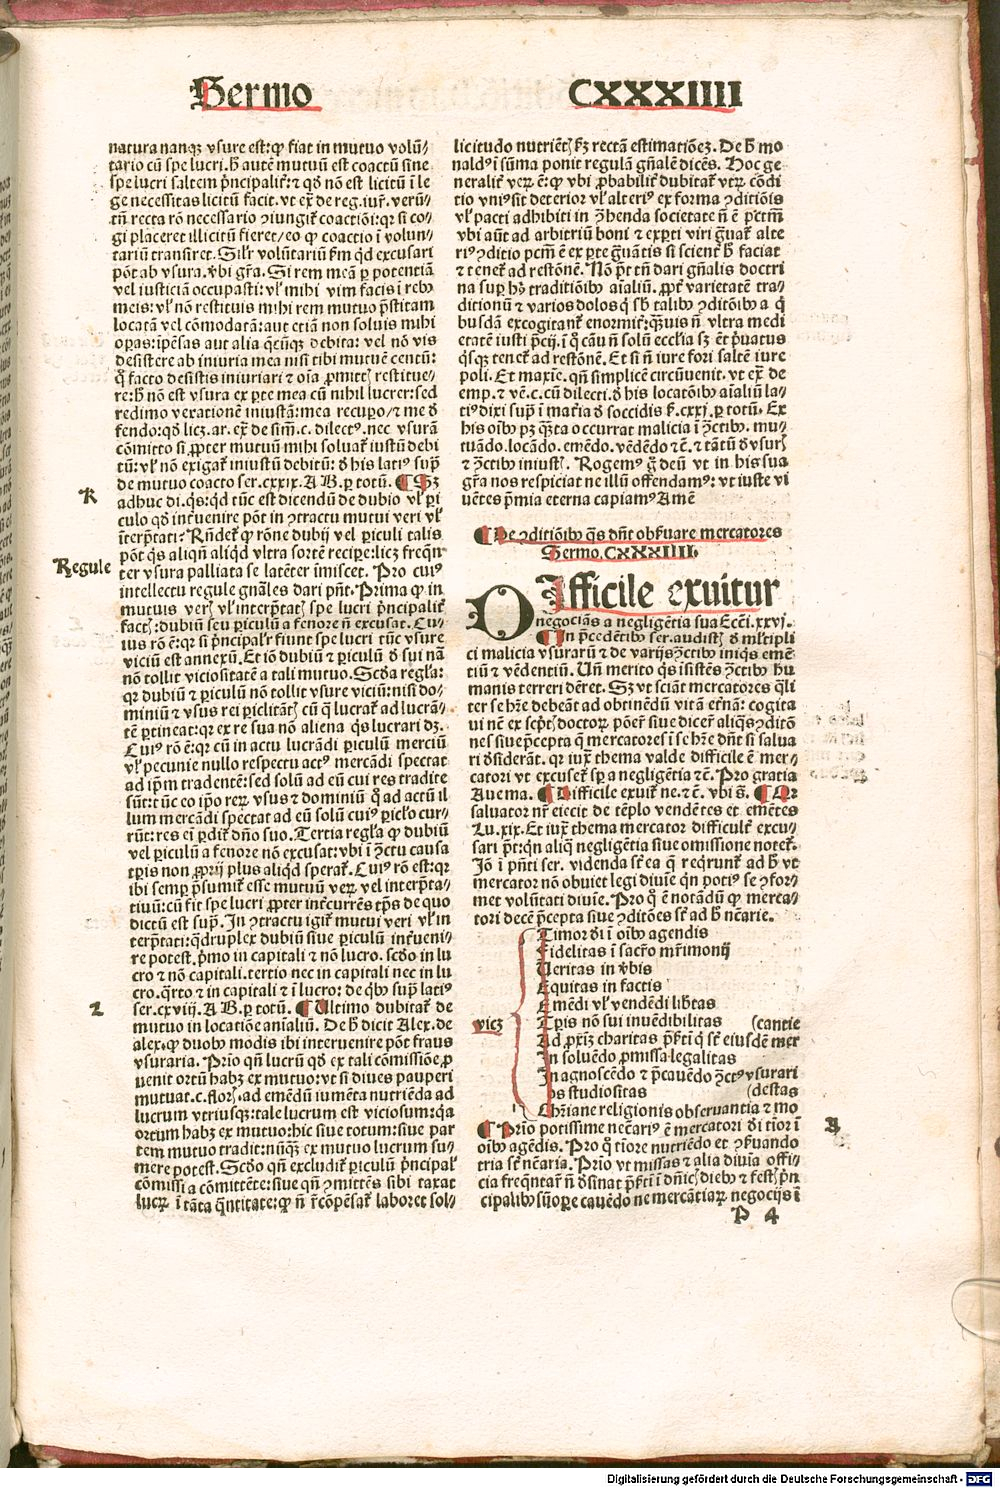 Sermo CXXXIIII
natura nanqȝ vsure est:ꝙ fiat in mutuo volũ-
tario cũ spe lucri. h̃ autẽ mutuũ est coactũ sine
spe lucri saltem pͥncipalit̃:⁊ qð nõ est licitũ ĩ le
ge necessitas licitũ facit. vt ex̃ de reg. iur̃. verũ-
tñ recta rõ necessario ꝯiungit̃ coactiõi:qꝛ si co-
gi placeret illicitũ fieret/eo ꝙ coactio ĩ volun-
tariũ transiret. Sil̃r volũtariũ fm qd excusari
põt ab vsura. vbi gr̃a. Si rem meã ꝑ potentiã
vel iusticiã occupasti: vl̃ mihi vim facis ĩ rebꝰ
meis: vl̃ nõ restituis mihi rem mutuo p̃stitam
locatã vel cõmodatã: aut etiã non soluis mihi
oꝑas: ipẽsas aut alia q̃cũqȝ debita: vel nõ vis
desistere ab iniuria mea nisi tibi mutuẽ centũ:
q̊ facto desistis iniuriari ⁊ oĩa ꝓmittis restitue-
re: h̃ nõ est vsura ex ꝑte mea cũ nihil lucrer: sed
redimo vexationẽ iniustã: mea recuꝑo/⁊ me ð
fendo: qð licȝ. ar. ex̃ de sim̃. c. dilectꝰ. nec vsurã
cõmitto si ꝓpter mutuũ mihi soluat̃ iustũ debi
tũ: vl̃ nõ exigat̃ iniustũ debitũ: ð his latiꝰ sup̃
de mutuo coacto ser. cxxix. A B. ꝑ totũ. ¶ Sȝ
K
adhuc di. q̃s: qd tũc est dicendũ de dubio vl̃ ꝑi
culo qð int̃uenire põt in ꝯtractu mutui veri vl̃
ĩterp̃tati: Rñdet̃ ꝙ rõne dubij vel ꝑiculi talis
põt q̃s aliqñ aliqd vltra sortẽ recipe: licȝ freq̃nt̃
Regule
ter vsura palliata se latẽter ĩmiscet. Pro cuiꝰ
intellectu regule gnãles dari pñt. Prima ꝙ in
mutuis veris vl̃ interp̃tatis spe lucri pͥncipalit̃
factis: dubiũ seu ꝑiculũ a fenore ñ excusat. Cu-
ius rõ ẽ: qꝛ si pͥncipal̃r fiunt spe lucri tũc vsure
viciũ est annexũ. Et iõ dubiũ ⁊ ꝑiculũ ð sui nã
nõ tollit viciositatẽ a tali mutuo. Scða regl̃a:
qꝛ dubiũ ⁊ ꝑiculũ nõ tollit vsure viciũ: nisi do-
miniũ ⁊ vsus rei ꝑiclitãtis cũ q̃ lucrat̃ ad lucrã-
tẽ ꝑtineat: qꝛ ex re sua nõ aliena q̃s lucrari dȝ.
Cuiꝰ rõ ẽ: qꝛ cũ in actu lucrãdi ꝑiculũ merciũ
vl̃ pecunie nullo respectu actꝰ mercãdi spectat
ad ip̃m tradentẽ: sed solũ ad eũ cui res tradite
sũt: tũc eo ip̃o reꝝ vsus ⁊ dominiũ q̊ ad actũ il
lum mercãdi spectat ad eũ solũ cuiꝰ ꝑicl̃o cur-
rũt: res eĩ ꝑdit̃ dño suo. Tertia regl̃a ꝙ dubiũ
vel ꝑiculũ a fenore nõ excusat: vbi ĩ ꝯctu causa
tp̃is non ꝓprij plus aliqd sperat̃. Cuiꝰ rõ est: qꝛ
ibi semꝑ p̃sumit̃ esse mutuũ verũ vel interp̃ta-
tiuũ: cũ fit spe lucri ꝓpter int̃currẽs tp̃s de quo
dictũ est sup̃. In ꝯtractu igit̃ mutui veri vl̃ in
terp̃tati: q̃druplex dubiũ siue ꝑiculũ int̃ueni-
re potest. pͥmo in capitali ⁊ nõ lucro. scðo in lu
cro ⁊ nõ capitali. tertio nec in capitali nec in lu
cro. q̃rto ⁊ in capitali ⁊ ĩ lucro: de q̃bꝰ sup̃ latiꝰ
L
ser. cxviij. A B. ꝑ totũ. ¶ Ultimo dubitat̃ de
mutuo in locatiõe aĩaliũ. De h̃ dicit Alex. de
alex. ꝙ duobꝰ modis ibi interuenire põt fraus
vsuraria. Prĩo qñ lucrũ qð ex tali cõmissiõe ꝓ
uenit ortũ habȝ ex mutuo: vt si diues pauperi
mutuat .c. flor̃. ad emẽdũ iumẽta nutriẽda ad
lucrum vtriusqȝ: tale lucrum est viciosum: q̃a
ortum habȝ ex mutuo: hic siue totum: siue par
tem mutuo tradit: nũqȝ ex mutuo lucrum su-
mere potest. Scðo qñ excludit̃ ꝑiculũ pͥncipal̃
cõmissi a cõmittẽte: siue qñ ꝯmittẽs sibi taxat
lucrũ ĩ tãta q̃ntitate: ꝙ ñ ĩ cõpẽsat̃ laboret sol-
licitudo nutriẽtis fȝ rectã estimatiõeȝ. De h̃ mo
naldꝰ ĩ sũma ponit regulã gñalẽ dicẽs. Hoc ge
neralit̃ veꝝ ẽ: ꝙ vbi ꝓbabilit̃ dubitat̃ vtꝝ cõdi
tio vniꝰ sit deterior vl̃ alteriꝰ ex forma ꝯditiõis
vl̃ pacti adhibiti in ꝯhenda societate ñ ẽ pc̃tm̃
vbi aũt ad arbitriũ boni ⁊ exꝑti viri g̃uat̃ alte
riꝰ ꝯditio pc̃m ẽ ex ꝑte g̃uãtis si scient̃ h̃ faciat
⁊ tenet̃ ad restõnẽ. Nõ p̃t tñ dari gñalis doctri
na suꝑ hꝰ traditiõibꝰ aĩaliũ. ꝓpt̃ varietatẽ tra-
ditionũ ⁊ varios dolos q̃ sb̃ talibꝰ ꝯditõibꝰ a q̃
busdã excogitant̃ enormit̃: q̃uis ñ vltra medi
etatẽ iusti p̃cij. ĩ q̃ cãu ñ solũ eccl̃ia sȝ et p̃uatus
q̃sqȝ tenet̃ ad restõnẽ. Et si ñ iure fori saltẽ iure
poli. Et maxĩe. qñ simplicẽ circũuenit. vt ex̃ de
emp. ⁊ vẽ. c. cũ dilecti. ð his locatõibꝰ aĩaliũ la-
tiꝰ dixi sup̃ ĩ ma̅ria ð soccidis k̃. cxxj. ꝑ totũ. Ex
his oĩbꝰ pȝ q̃ȝta occurrat malicia ĩ ꝯctibꝰ. mu-
tuãdo. locãdo. emẽdo. vẽdẽdo ⁊c̃. ⁊ tãtũ ð vsuris
⁊ ꝯctibꝰ iniustis. Rogemꝰ g̃ deũ vt in his sua
gr̃a nos respiciat ne illũ offendamꝰ: vt iuste vi
uẽtes p̃mia eterna capiamꝰ Amẽ
¶ De ꝯditiõibꝰ q̃s dñt obs̃uare mercatores
Sermo. CXXXIIII.
DIfficile exuitur
negociãs a negligẽtia sua Ecc̃i. xxvj.
¶ In p̃cedẽtibꝰ ser. audistis ð ml̃tipli
ci malicia vsurarũ ⁊ de varijs ꝯctibꝰ iniq̃s emẽ
tiũ ⁊ vẽdentiũ. Uñ merito q̃s ĩsistẽs ꝯctibꝰ hu
manis terreri dẽret. Sȝ vt sciãt mercatores q̃li
ter se hr̃e debeãt ad obtinẽdũ vitã et̃nã: cogita
ui nẽ ex scp̃tis doctoꝝ põer̃ siue dicer̃ aliq̃s ꝯditõ
nes siue p̃cepta q̃ mercatores ĩ se hr̃e dñt si salua
ri ðsiderãt. qꝛ iux̃ thema valde difficile ẽ mer-
catori vt excuset̃ sp̃ a negligẽtia ⁊c̃. Pro gratia
Aue ma. ¶ Difficile exuit̃ ne. ⁊c̃. vbi s̃. ¶ Qꝛ
saluator nr̃ eiecit de tẽplo vendẽtes et emẽtes
Lu. xix. Et iux̃ thema mercator difficult̃ excu-
sari p̃t: qñ aliq̃ negligẽtia siue omissione notet̃.
Jõ ĩ pñti ser. videnda st̃ ea q̃ reqͥrunt̃ ad h̃ vt
mercator nõ obuiet legi diuĩe qĩn potiꝰ se ꝯfor-
met volũtati diuĩe. Pro q̊ ẽ notãdũ ꝙ merca-
tori decẽ p̃cepta siue ꝯditões st̃ ad h̃ ncẽ̃arie.
Timor dĩ ĩ oĩbꝰ agendis
Fidelitas ĩ sacr̃o mr̃imonij
Veritas in v̾bis
Equitas in factis
Emẽdi vl̃ vendẽdi lib̾tas
vicȝ
Tp̃is nõ sui inuẽdibilitas (cantie
Ad ꝓxiȝ charitas p̃fcti q̃ st̃ eiusdẽ mer
In soluẽdo ꝓmissa legalitas
In agnoscẽdo ⁊ p̃cauẽdo ꝯctꝰ vsurari
os studiositas (destas
Chr̃iane religionis obseruantia ⁊ mo
A
¶ Prĩo potissime ncẽ̃ariꝰ ẽ mercatori dĩ tĩor ĩ
oĩbꝰ agẽdis. Pro q̊ tĩore nutriẽdo et ꝯs̃uando
tria st̃ ncẽ̃aria. Prĩo vt missas ⁊ alia diuĩa offi-
cia freq̃ntat ñ ðsinat p̃fcti ĩ dñicis diebꝰ ⁊ festis pͥn
cipalibꝰ sũoꝑe cauẽdo ne mercãtiaꝝ negocijs ĩ
P 4
Digitalisierung gefördert durch die Deutsche Forschungsgemeinschaft - DFG